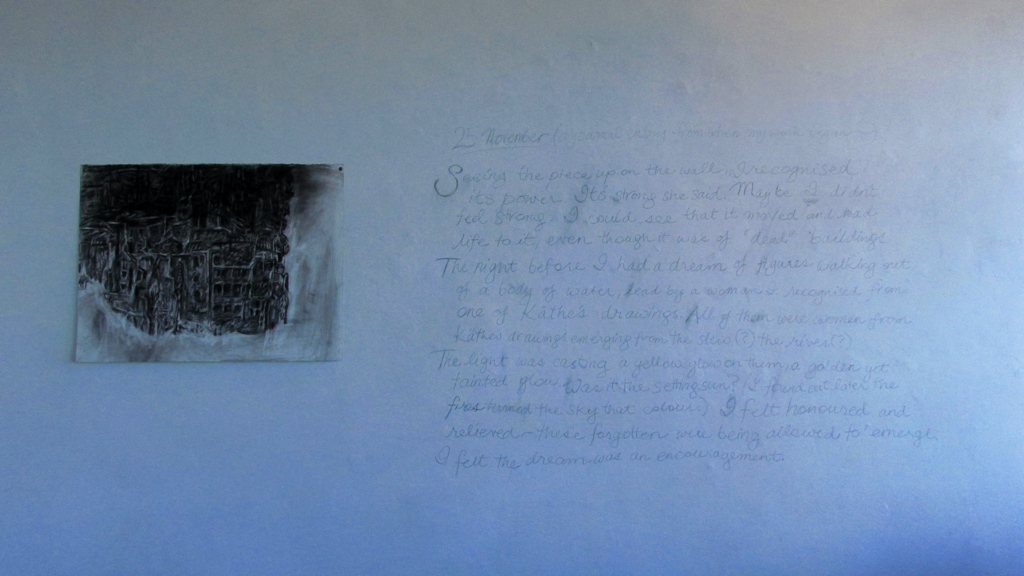 25 November (a journal
Seeing the piece up on the wall, I recognised
its power. It's strong she said. Maybe I didn't
feel strong. I could see that it moved and had
life to it, even though it was of "dead" buildings.
The night before I had a dream of figures walking out
of a body of water, lead by a woman I recognised from
one of Käthe's drawings. All of them were women from
Käthe's drawings emerging from the slew(?) the river(?)
The light was casting a yellow glow on them, a golden yet
tainted glow. Was it the setting sun? (I found out later the
fires turned the sky that colour.) I felt honoured and
relieved - these forgotten were being allowed to emerge.
I felt the dream was an encouragement.